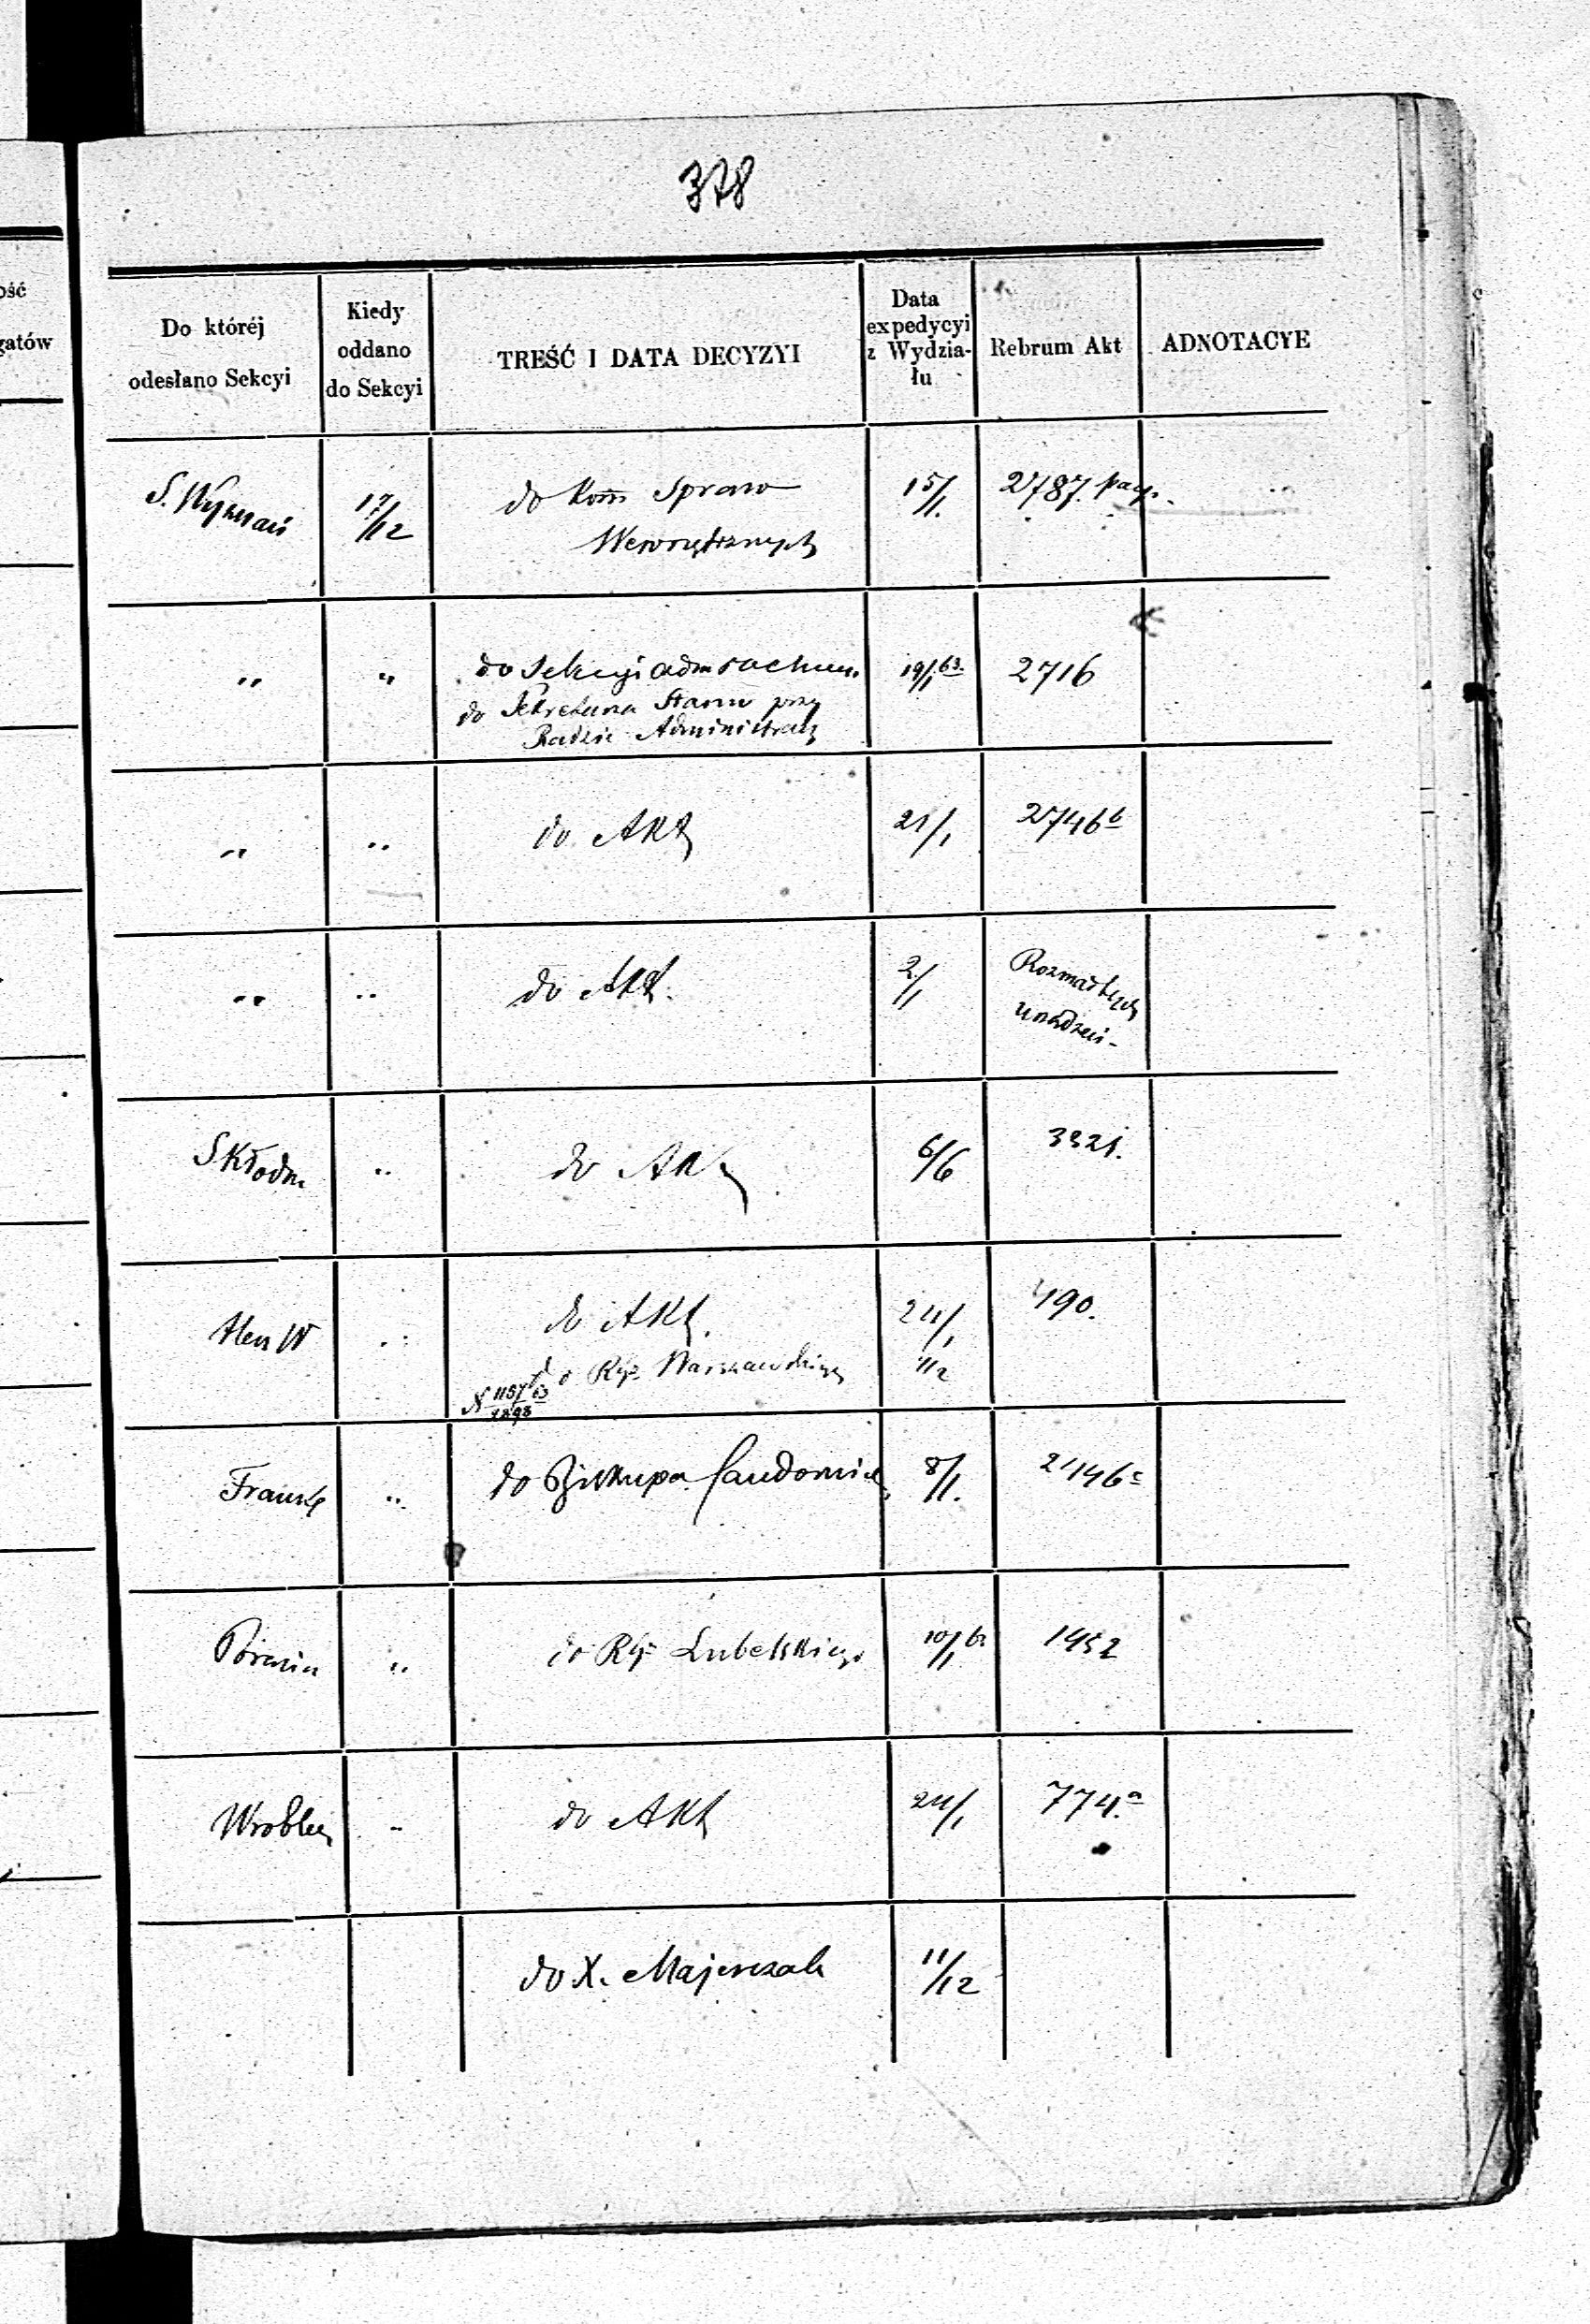 378
ość
gatów
Do któréj
odesłano Sekcyi
Kiedy
oddano
do Sekcyi
TREŚĆ I DATA DECYZYI
Data
expedycyi
z Wydzia-
łu
Rebrum Akt
ADNOTACYE
S. Wyznań
17/12
do Kom Spraw
Wewnętrznych
15/1.
2787.
" "
do Sekcyi adm rachun.
do Sekretarza Stanu przy
Radzie Administracy
19/1 63.
2716
" "
do Akt
21/1
2746 b
" "
do Akt.
2/1
Rozmaitych
urządzeń -
Skłodn
"
do Akt
6/6
3321.
Alex W
"
do Akt.
do Rz. Warszawskiego
N 1157/63
2898
24/1
1/12
490.
Fransk
"
do Biskupa Sandomir
8/1.
2446 c
"
do Rz. Lubelskiego
10/1 63
1952
Wroblew
"
do Akt
24/1
774. a
do X. Majerczak
11/12